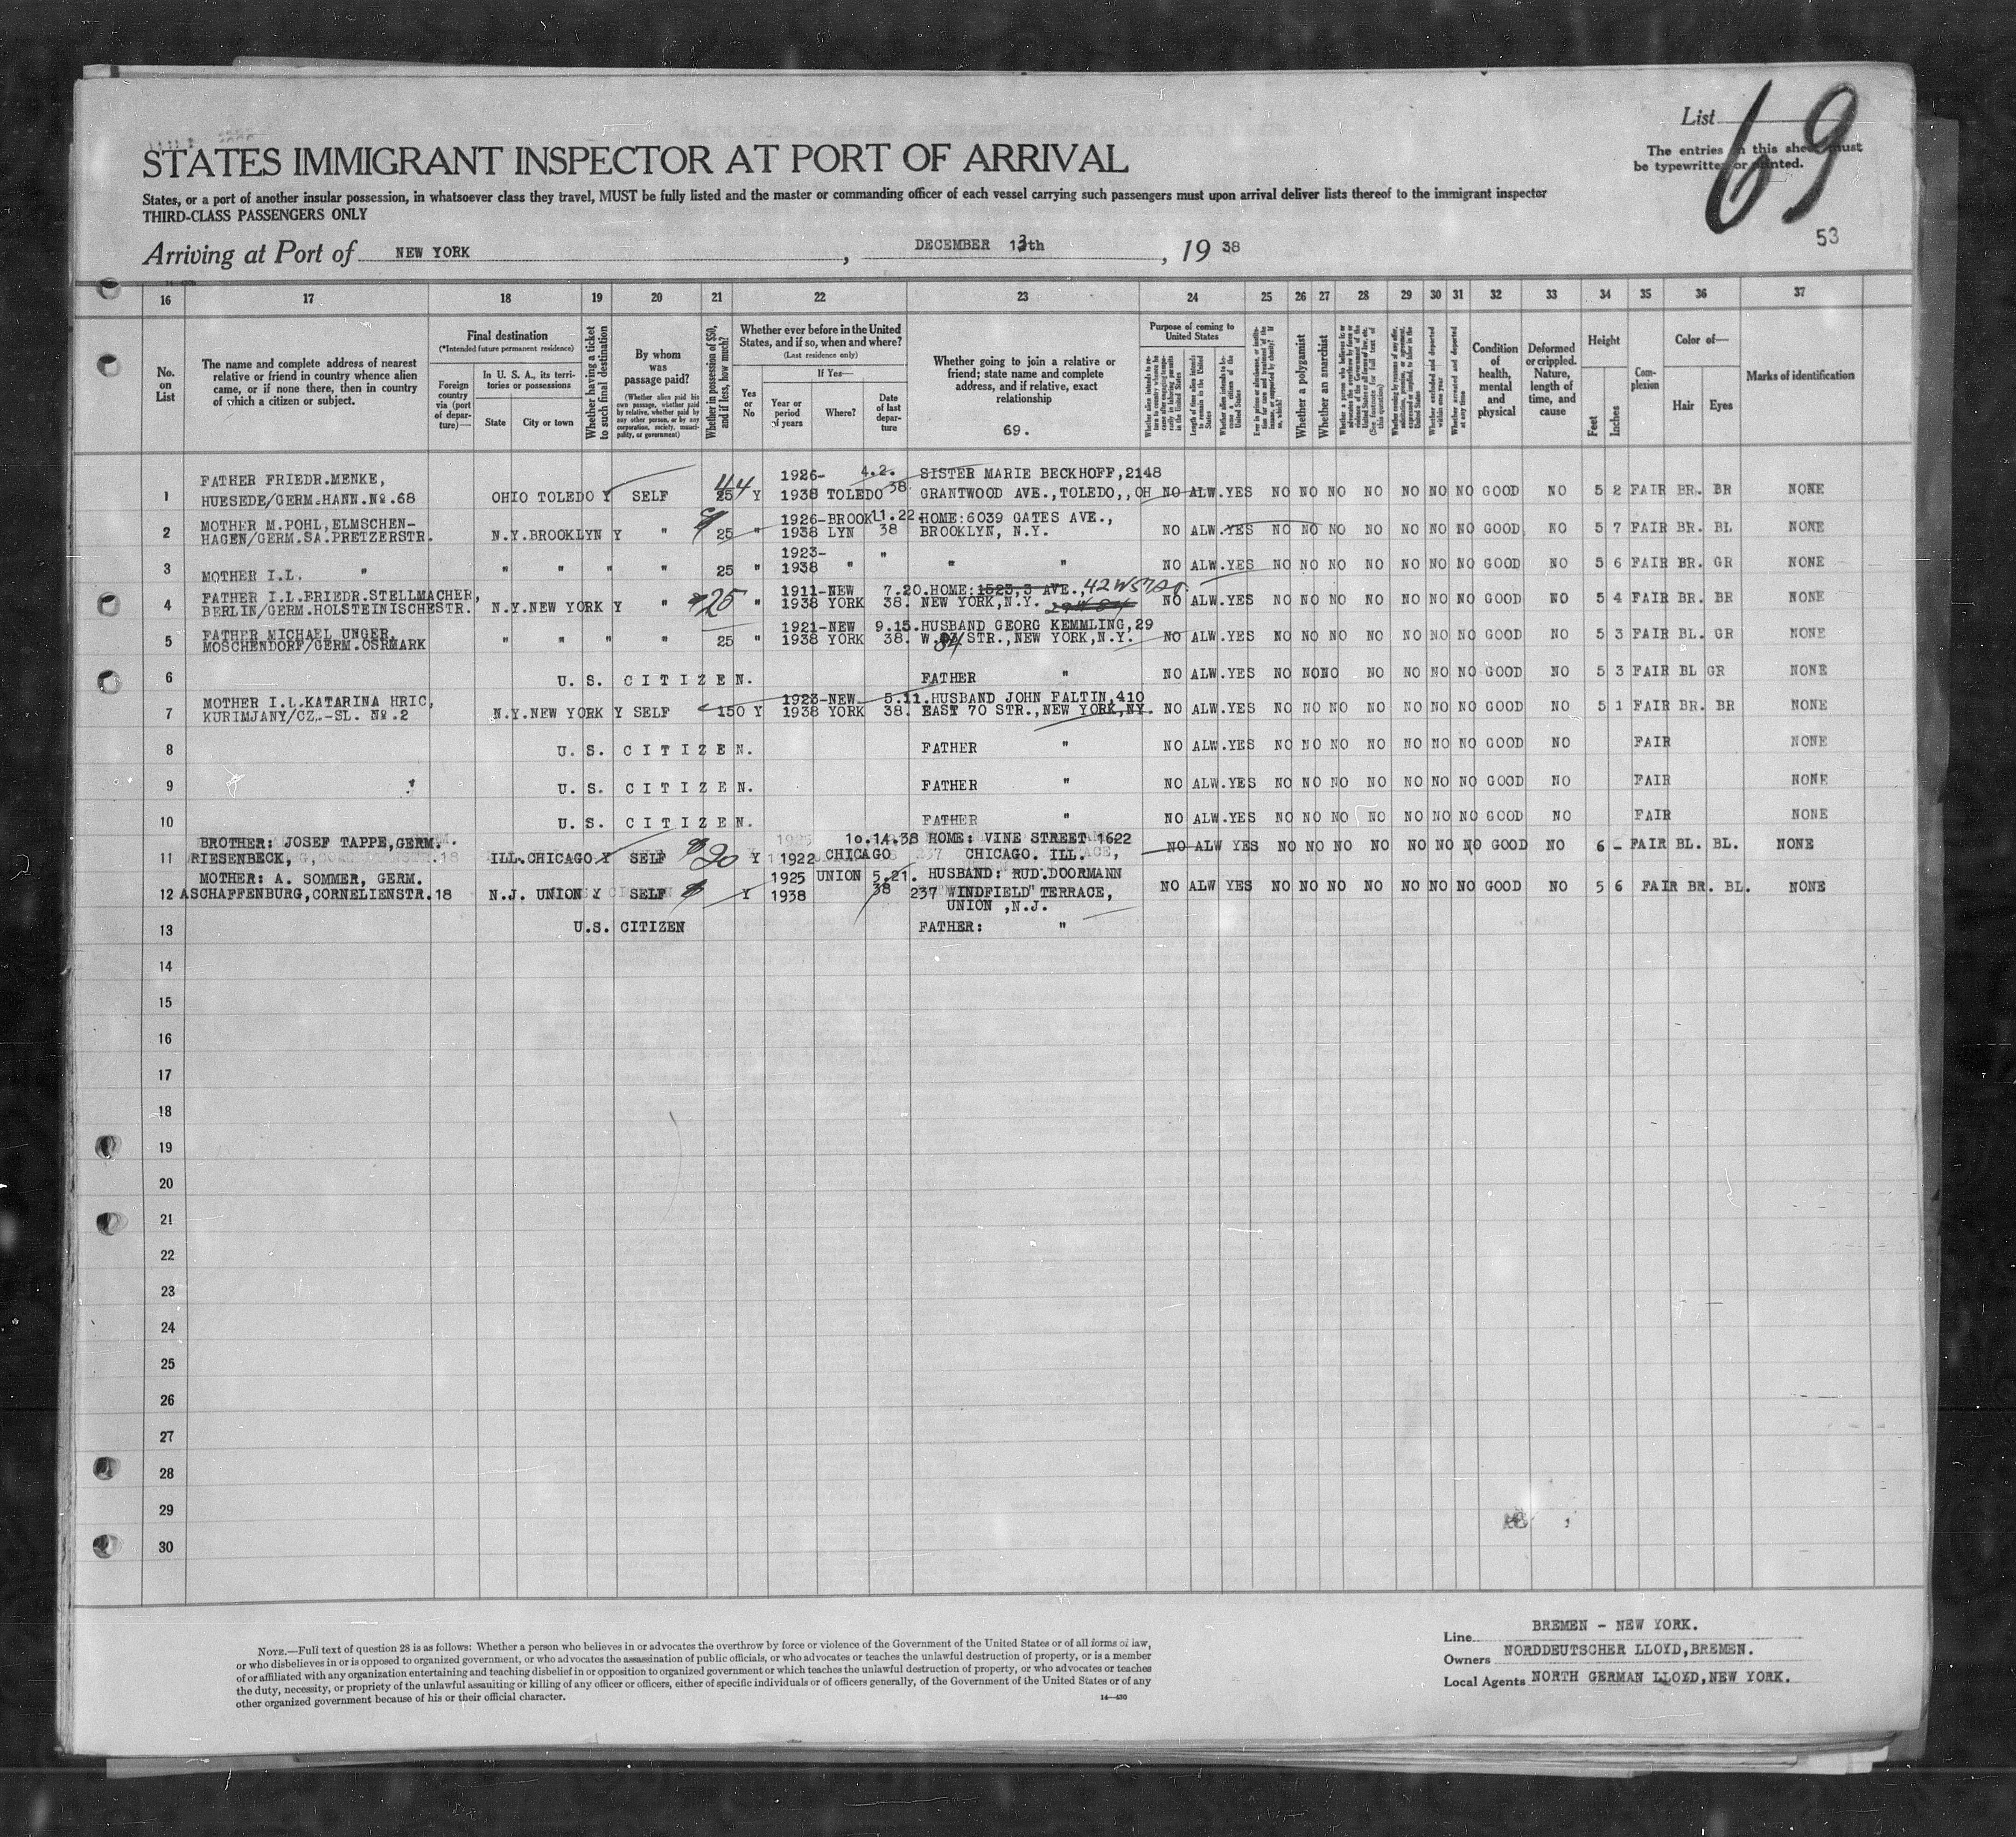 List 69
The entries on this sheet must
be typewritten or printed.
STATES IMMIGRANT INSPECTOR AT PORT OF ARRIVAL
States, or a port of another insular possession, in whatsoever class they travel, MUST be fully listed and the master or commanding officer of each vessel carrying such passengers must upon arrival deliver lists thereof to the immigrant inspector
THIRD-CLASS PASSENGERS ONLY
53
Arriving at Port of NEW YORK, DECEMBER 13th, 19 38
16 17 18 19 20 21 22 23 24 25 26 27 28 29 30 31 32 33 34 35 36 37
No. on List
The name and complete address of nearest
relative or friend in country whence alien
came, or if none there, then in country
of which a citizen or subject.
Final destination
(*Intended future permanent residence)
Foreign country via (port of departure)—
In U. S. A., its territories or possessions
State City or town
Whether having a ticket to such final destination
By whom was passage paid?
(Whether alien paid his own passage, whether paid by relative, whether paid by any other person, or by any corporation, society, municipality, or government)
Whether in possession of $50, and if less, how much?
Whether ever before in the United
States, and if so, when and where?
(Last residence only)
Yes or No
If Yes—
Year or period of years
Where?
Date of last departure
Whether going to join a relative or
friend; state name and complete
address, and if relative, exact
relationship
69.
Purpose of coming to United States
Length of time alien intends to remain in the United States
Whether a polygamist
Whether an anarchist
Condition of health, mental and physical
Deformed or crippled. Nature, length of time, and cause
Height
Feet Inches
Complexion
Color of—
Hair Eyes
Marks of identification
FATHER FRIEDR.MENKE, 1926- 4.2. SISTER MARIE BECKHOFF,2148
1 HUESEDE/GERM.HANN.No.68 OHIO TOLEDO Y SELF 25 44 Y 1938 TOLEDO 38 GRANTWOOD AVE.,TOLEDO,,OH NO ALW.YES NO NO NO NO NO NO NO GOOD NO 5 2 FAIR BR. BR NONE
MOTHER M.POHL,ELMSCHEN- 1926-BROOK 11.22. HOME:6039 GATES AVE.,
2 HAGEN/GERM.SA.PRETZERSTR. N.Y.BROOKLYN Y " 25 " 1938 LYN 38 BROOKLYN, N.Y. NO ALW.YES NO NO NO NO NO NO NO GOOD NO 5 7 FAIR BR. BL NONE
1923- "
3 MOTHER I.L. " " " " " 25 " 1938 " " " NO ALW.YES NO NO NO NO NO NO NO GOOD NO 5 6 FAIR BR. GR NONE
FATHER I.L.FRIEDR.STELLMACHER, 1911-NEW 7.20. HOME:1523,3 AVE., 42 W 57
4 BERLIN/GERM.HOLSTEINISCHESTR. N.Y.NEW YORK Y " $25 " 1938 YORK 38. NEW YORK,N.Y. NO ALW.YES NO NO NO NO NO NO NO GOOD NO 5 4 FAIR BR. BR NONE
FATHER MICHAEL UNGER, 1921-NEW 9.15. HUSBAND GEORG KEMMLING,29
5 MOSCHENDORF/GERM.OSRMARK " " " " 25 " 1938 YORK 38. W,84 STR.,NEW YORK,N.Y. NO ALW.YES NO NO NO NO NO NO NO GOOD NO 5 3 FAIR BL. GR NONE
6 U. S. CITIZEN. FATHER " NO ALW.YES NO NONO NO NO NO NO GOOD NO 5 3 FAIR BL GR NONE
MOTHER I.L.KATARINA HRIC, 1923-NEW 5.11. HUSBAND JOHN FALTIN,410
7 KURIMJANY/CZ.-SL. No.2 N.Y.NEW YORK Y SELF 150 Y 1938 YORK 38. EAST 70 STR.,NEW YORK,NY. NO ALW.YES NO NO NO NO NO NO NO GOOD NO 5 1 FAIR BR. BR NONE
8 U. S. CITIZEN. FATHER " NO ALW.YES NO NO NO NO NO NO NO GOOD NO FAIR NONE
9 U. S. CITIZEN. FATHER " NO ALW.YES NO NO NO NO NO NO NO GOOD NO FAIR NONE
10 U. S. CITIZEN. FATHER " NO ALW.YES NO NO NO NO NO NO NO GOOD NO FAIR NONE
BROTHER: JOSEF TAPPE,GERM. 10.14.38 HOME: VINE STREET 1622
11 RIESENBECK, ILL.CHICAGO Y SELF $20 Y 1922 CHICAGO CHICAGO. ILL. NO ALW YES NO NO NO NO NO NO NO GOOD NO 6 - FAIR BL. BL. NONE
MOTHER: A. SOMMER, GERM. 1925 UNION 5.21. HUSBAND: RUD.DOORMANN
12 ASCHAFFENBURG,CORNELIENSTR.18 N.J. UNION Y SELF Y 1938 38 237 WINDFIELD TERRACE, NO ALW YES NO NO NO NO NO NO NO GOOD NO 5 6 FAIR BR. BL. NONE
UNION ,N.J.
13 U.S. CITIZEN FATHER: "
14
15
16
17
18
19
20
21
22
23
24
25
26
27
28
29
30
NOTE.—Full text of question 28 is as follows: Whether a person who believes in or advocates the overthrow by force or violence of the Government of the United States or of all forms of law,
or who disbelieves in or is opposed to organized government, or who advocates the assassination of public officials, or who advocates or teaches the unlawful destruction of property, or is a member
of or affiliated with any organization entertaining and teaching disbelief in or opposition to organized government or which teaches the unlawful destruction of property, or who advocates or teaches
the duty, necessity, or propriety of the unlawful assaulting or killing of any officer or officers, either of specific individuals or of officers generally, of the Government of the United States or of any
other organized government because of his or their official character.
14—430
Line BREMEN - NEW YORK.
Owners NORDDEUTSCHER LLOYD,BREMEN.
Local Agents NORTH GERMAN LLOYD,NEW YORK.